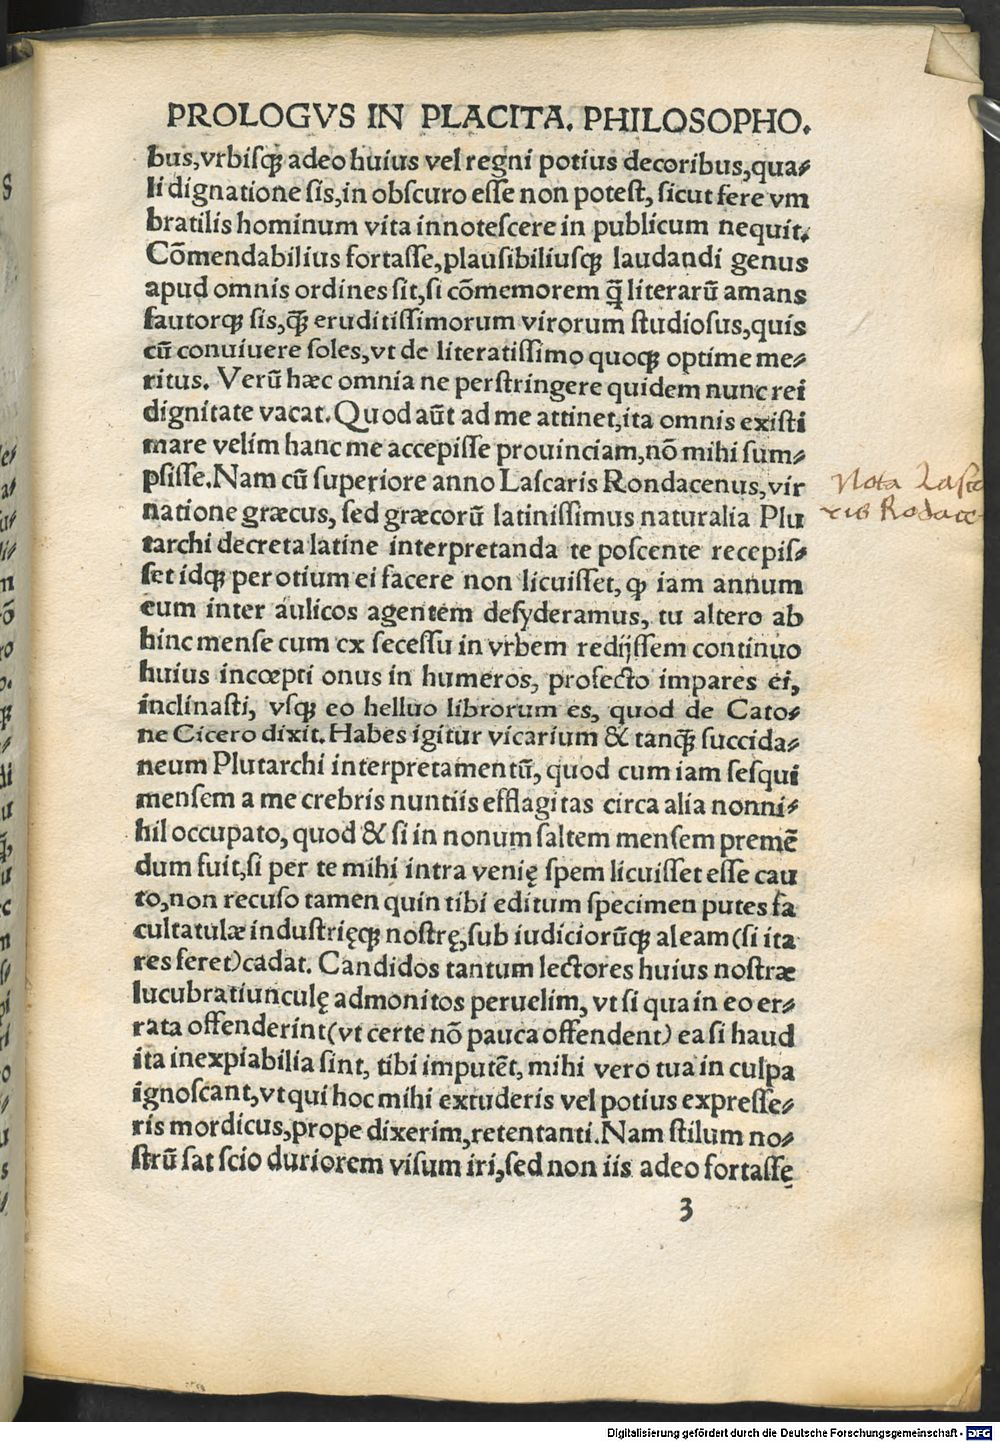 PROLOGVS IN PLACITA. PHILOSOPHO.
bus,vrbisq; adeo huius vel regni potius decoribus,qua⸗
li dignatione sis,in obscuro esse non potest, sicut fere vm
bratilis hominum vita innotescere in publicum nequit.
Cōmendabilius fortasse,plausibiliusq; laudandi genus
apud omnis ordines sit,si cōmemorem q̄ literarū amans
fautorq; sis,q̄; eruditissimorum virorum studiosus,quis
cū conuiuere soles,vt de literatissimo quoq; optime me⸗
ritus. Verū hæc omnia ne perstringere quidem nunc rei
dignitate vacat. Quod aūt ad me attinet,ita omnis existi
mare velim hanc me accepisse prouinciam,nō mihi sum⸗
psisse. Nam cū superiore anno Lascaris Rondacenus,vir
natione græcus, sed græcorū latinissimus naturalia Plu
tarchi decreta latine interpretanda te poscente recepis⸗
set idq; per otium ei facere non licuisset, q; iam annum
eum inter aulicos agentem desyderamus, tu altero ab
hinc mense cum ex secessu in vrbem redijssem continuo
huius incœpti onus in humeros, profecto impares ei,
inclinasti, vsq; eo helluo librorum es, quod de Cato⸗
ne Cicero dixit. Habes igitur vicarium & tanq̄; succida⸗
neum Plutarchi interpretamentū, quod cum iam sesqui
mensem a me crebris nuntiis efflagitas circa alia nonni⸗
hil occupato, quod & si in nonum saltem mensem premē
dum fuit,si per te mihi intra venię spem licuisset esse cau
to,non recuso tamen quin tibi editum specimen putes fa
cultatulæ industrięq; nostrę,sub iudiciorūq; aleam(si ita
res feret)cadat. Candidos tantum lectores huius nostræ
lucubratiunculę admonitos peruelim, vt si qua in eo er⸗
rata offenderint(vt certe nō pauca offendent) ea si haud
ita inexpiabilia sint, tibi imputēt, mihi vero tua in culpa
ignoscant,vt qui hoc mihi extuderis vel potius expresse⸗
ris mordicus,prope dixerim,retentanti. Nam stilum no⸗
strū sat scio duriorem visum iri,sed non iis adeo fortasse
3
Nota Lasca
ris Rodace
Digitalisierung gefördert durch die Deutsche Forschungsgemeinschaft - DFG